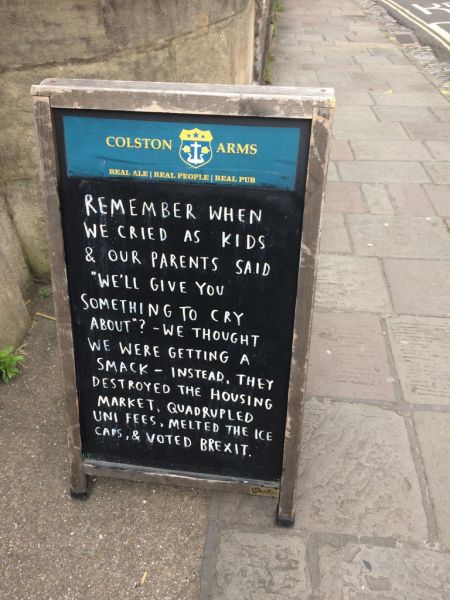 COLSTON ARMS
REAL ALE | REAL PEOPLE | REAL PUB
REMEMBER WHEN
WE CRIED AS KIDS
& OUR PARENTS SAID
"WE'LL GIVE YOU
SOMETHING TO CRY
ABOUT"? - WE THOUGHT
WE WERE GETTING A
SMACK - INSTEAD, THEY
DESTROYED THE HOUSING
MARKET, QUADRUPLED
UNI FEES, MELTED THE ICE
CAPS, & VOTED BREXIT.